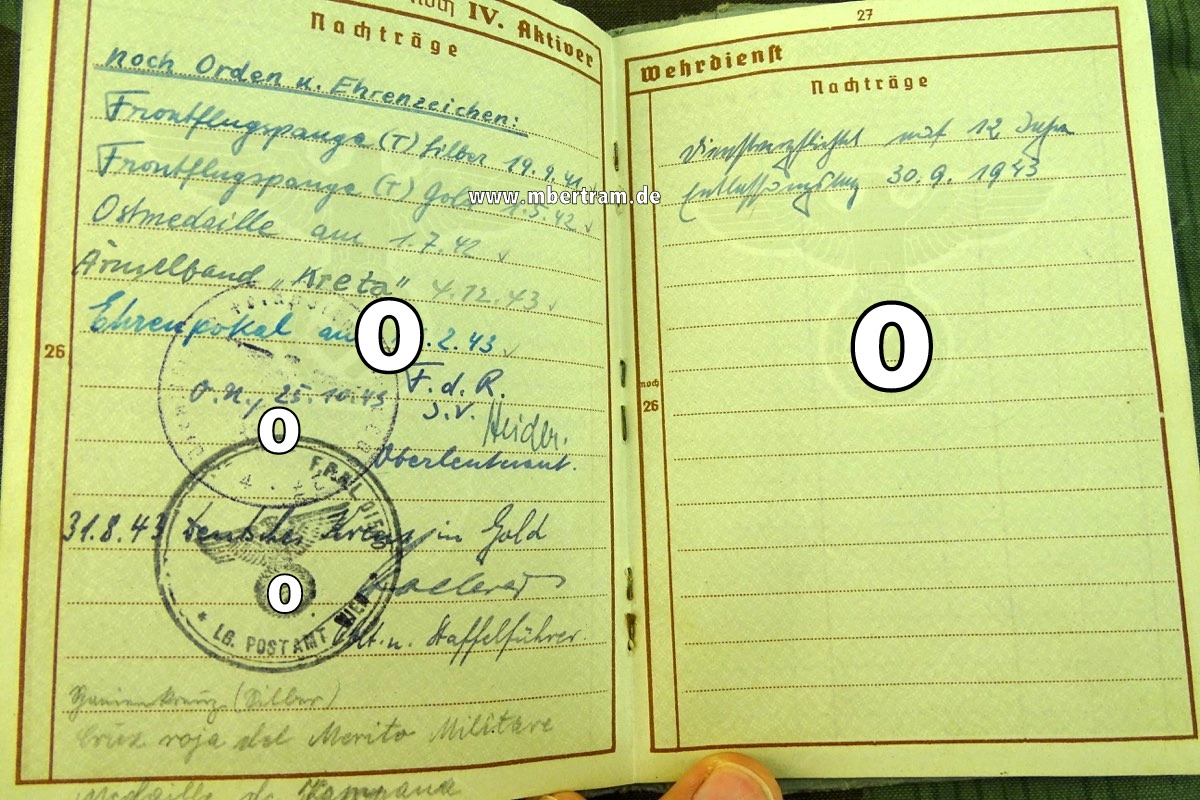 noch IV. Aktiver
Nachträge
noch Orden u. Ehrenzeichen:
Frontflugspange (T) Silber 19.9.41
Frontflugspange (T) Gold 1.5.42
Ostmedaille am 1.7.42
Ärmelband „Kreta" 4.12.43
Ehrenpokal .2.43
26
O.U., 25.10.43
F.d.R.
J.V.
Heider.
Oberleutnant.
31.8.43 Deutsches Kreuz in Gold
u. Staffelführer
LG. POSTAMT WIEN
(Silber)
Cruz roja del Merito Militare
medaille de Kampana
27
Wehrdienst
Nachträge
mit 12
Entlassungstag 30.9.1943
noch
26
www.mbertram.de
0
0
0
0